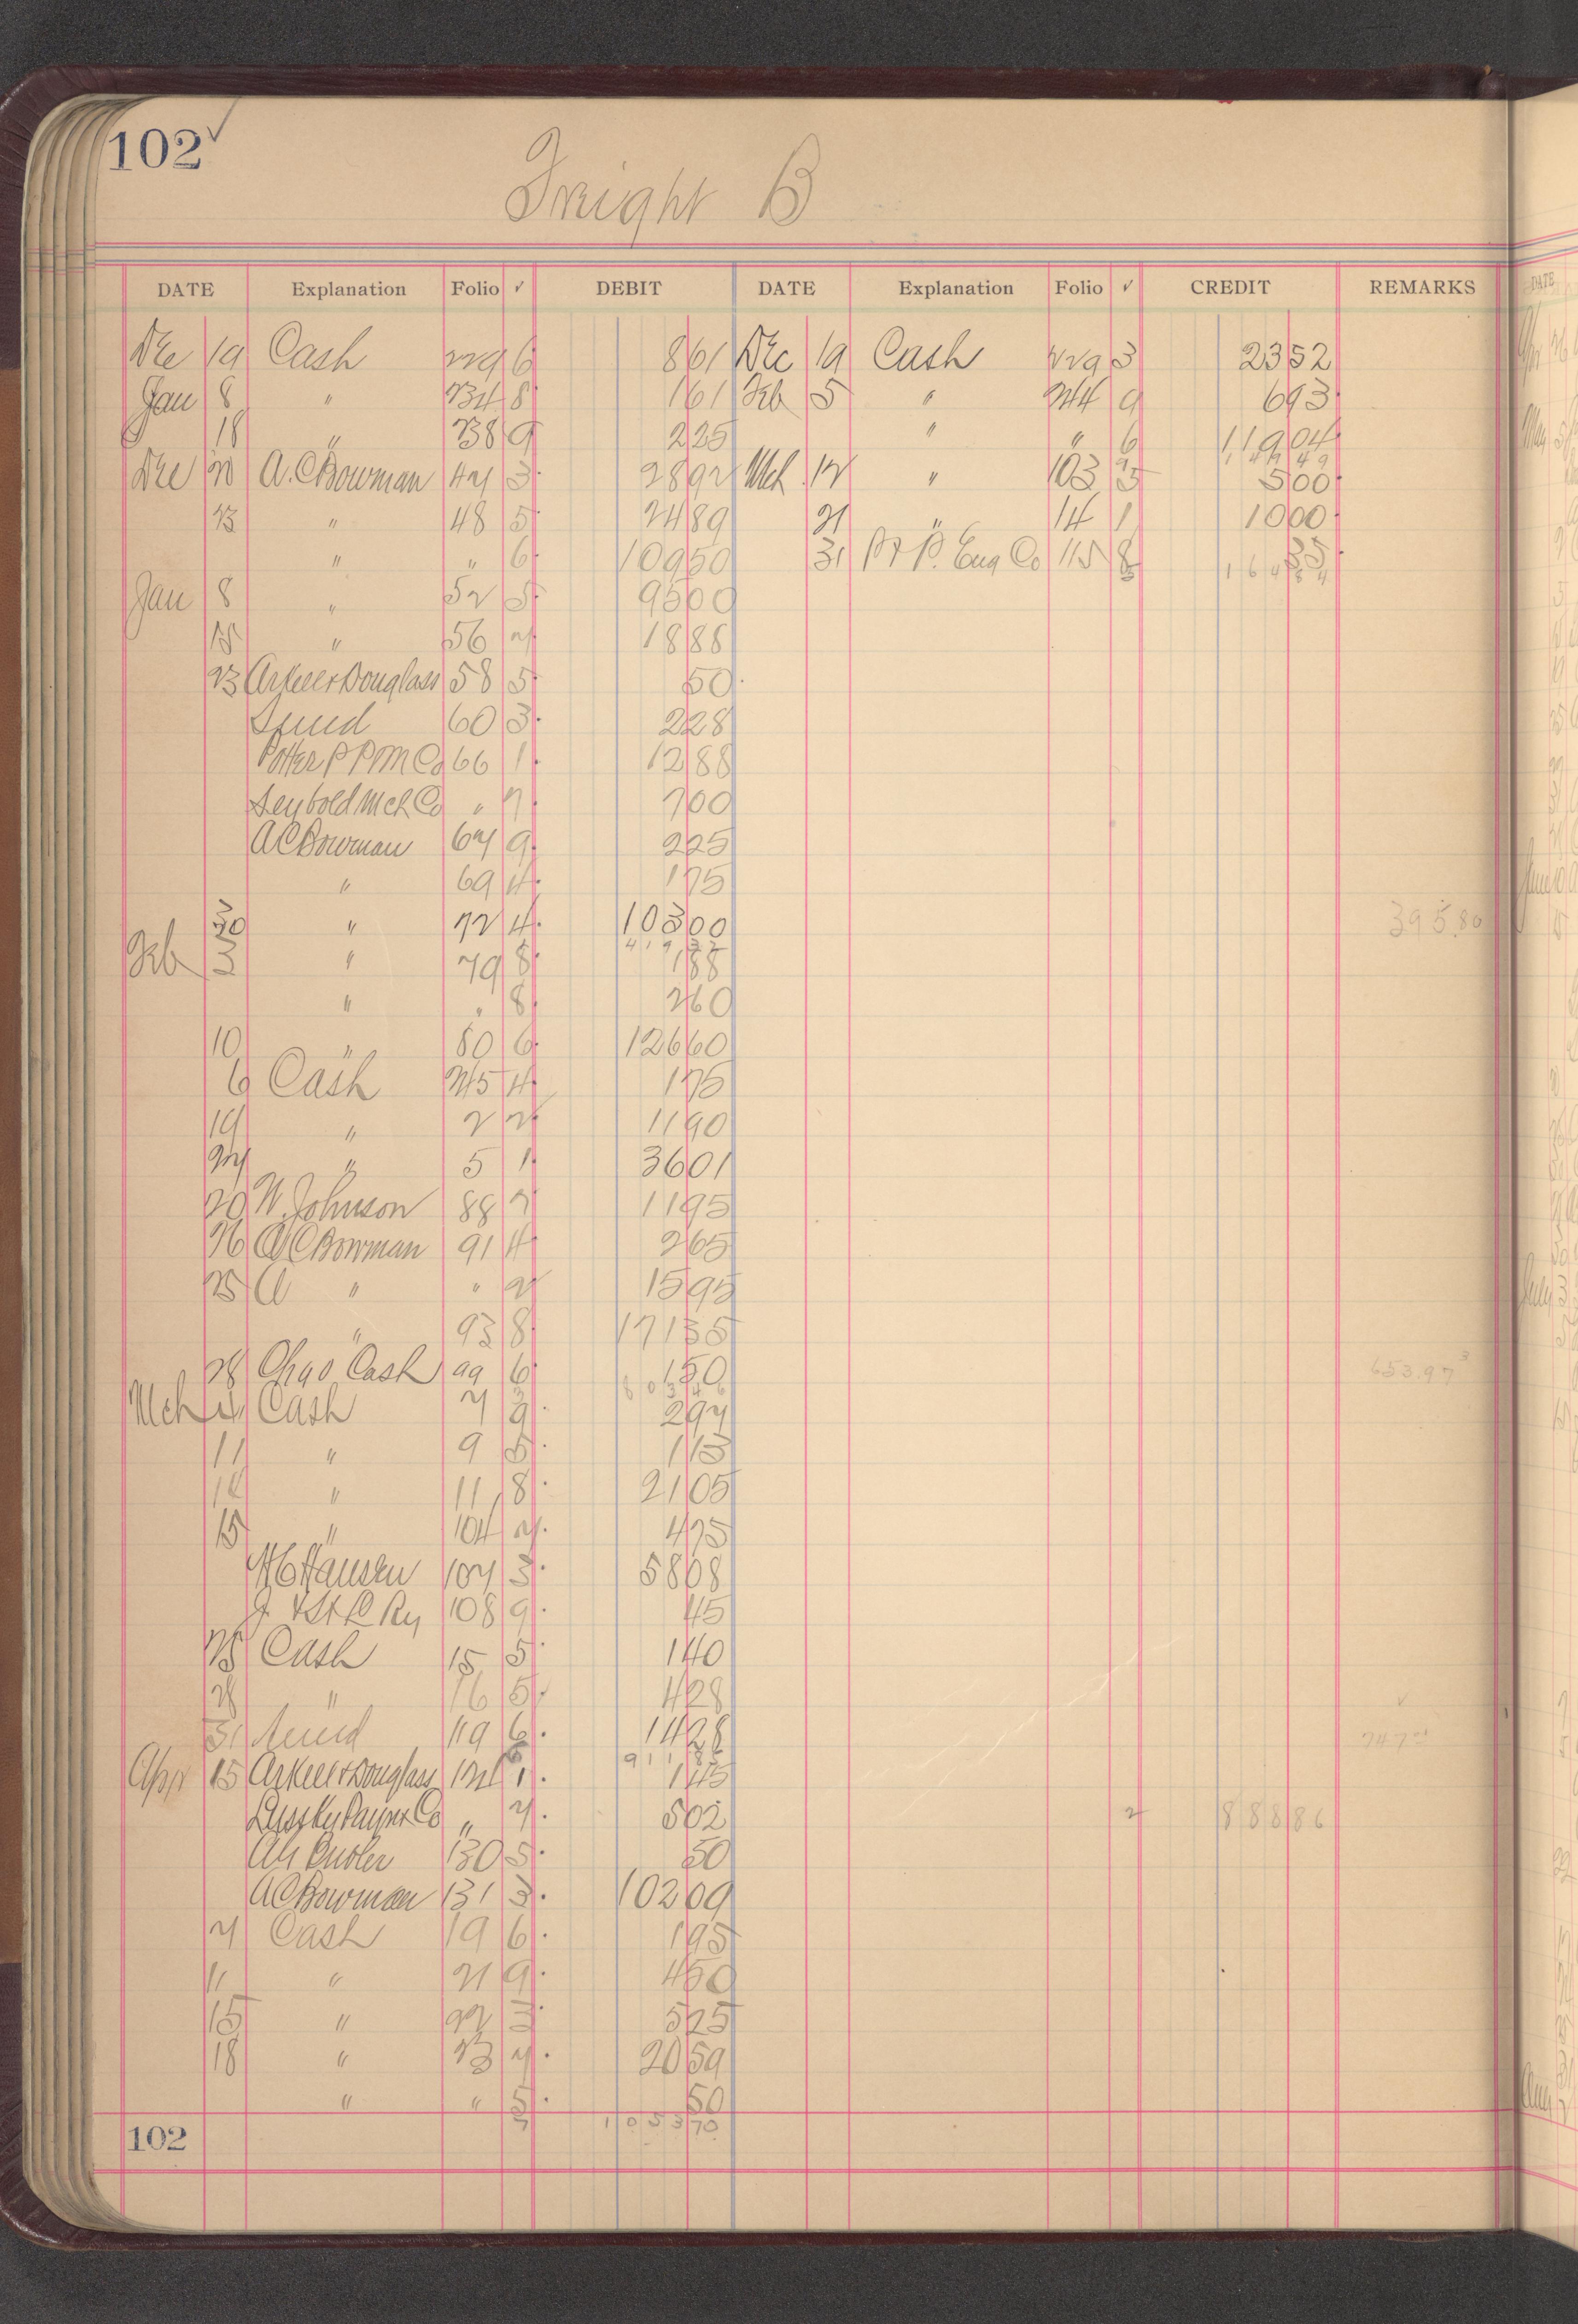 102 ✓
Freight B
DATE Explanation Folio ✓ DEBIT DATE Explanation Folio ✓ CREDIT REMARKS
Dec 19 Cash 229 6 8 61 Dec 19 Cash 229 3 23 52
Jan 8 " 234 8 1 61 Feb 5 " 244 9 6 93
18 " 238 9 2 25 " " 6 119 04
149 49
Dec 20 A. C Bowman 47 3 28 92 Mch 12 " 103 5 5 00
23 " 48 5 24 89 21 " 14 1 10 00
" " 6 109 50 31 P & P. Eng Co 115 8 35
164 84
Jan 8 " 52 5 95 00
15 " 56 7 18 88
23 Arkell & Douglass 58 5 50
60 3 2 28
Potter P P M Co 66 1 12 88
Seybold Mch Co " 7 7 00
A C Bowman 67 9 2 25
" 69 4 1 75
30 " 72 4 103 00 395.80
Feb 3 " 79 8 1 88
" " 8 2 60
10 " 80 6 126 60
6 Cash 245 4 1 75
19 " 2 2 11 90
27 " 5 1 36 01
20 W. Johnson 88 7 11 95
26 A C Bowman 91 4 2 65
25 " " 2 15 95
" 93 8 171 35
28 Chas Cash 99 6 1 50 653.97
Mch 4 Cash 7 9 2 97
11 " 9 5 1 13
14 " 11 8 21 05
15 " 104 7 4 75
H C Hansen 107 3 58 08
& St L Ry 108 9 45
25 Cash 15 5 1 40
28 " 16 5 4 28
31 119 6 14 28
911 88
Apr 15 Arkell & Douglass 124 1 1 45
" 7 5 02 2 888 86
130 5 50
A C Bowman 131 3 102 09
7 Cash 19 6 1 95
11 " 21 9 4 50
15 " 22 3 5 25
18 " 23 7 20 59
" " 5 50
1053 70
102